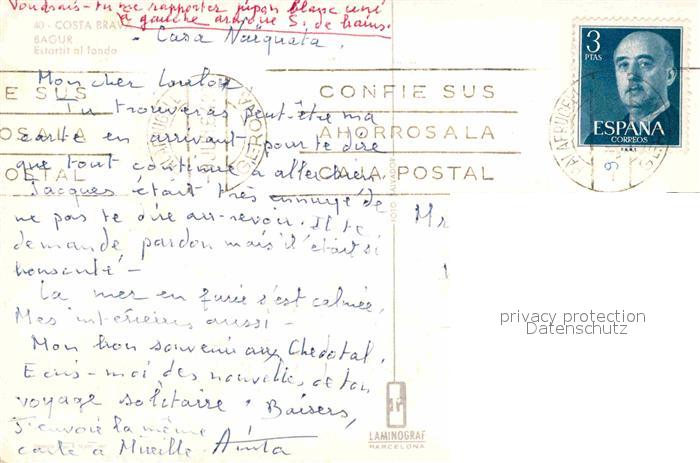 Voudrais-tu me rapporter jupon blanc uni
à gauche armoire S. de bains.
40 - COSTA BRAVA
BAGUR
Estartit al fondo
- Casa
Mon cher Loulou
Tu trouveras peut-être ma
carte en arrivant pour te dire
que tout continue à aller bien.
Jacques était très ennuyé de
ne pas te dire au-revoir. Il te
demande pardon mais il était si
-
La mer en furie s'est calmée,
Mes intérieurs aussi -
Mon bon souvenir aux Chedotal.
Ecris-moi des nouvelles de ton
voyage solitaire. Baisers,
J'envoie la même
carte à Mireille. Anita
CONFIE SUS
AHORROS A LA
CAJA POSTAL
E SUS
ROS A LA
POSTAL
GERONA
3
PTAS
ESPAÑA
CORREOS
F.N.M.T.
Mr
LAMINOGRAF
BARCELONA
privacy protection
Datenschutz